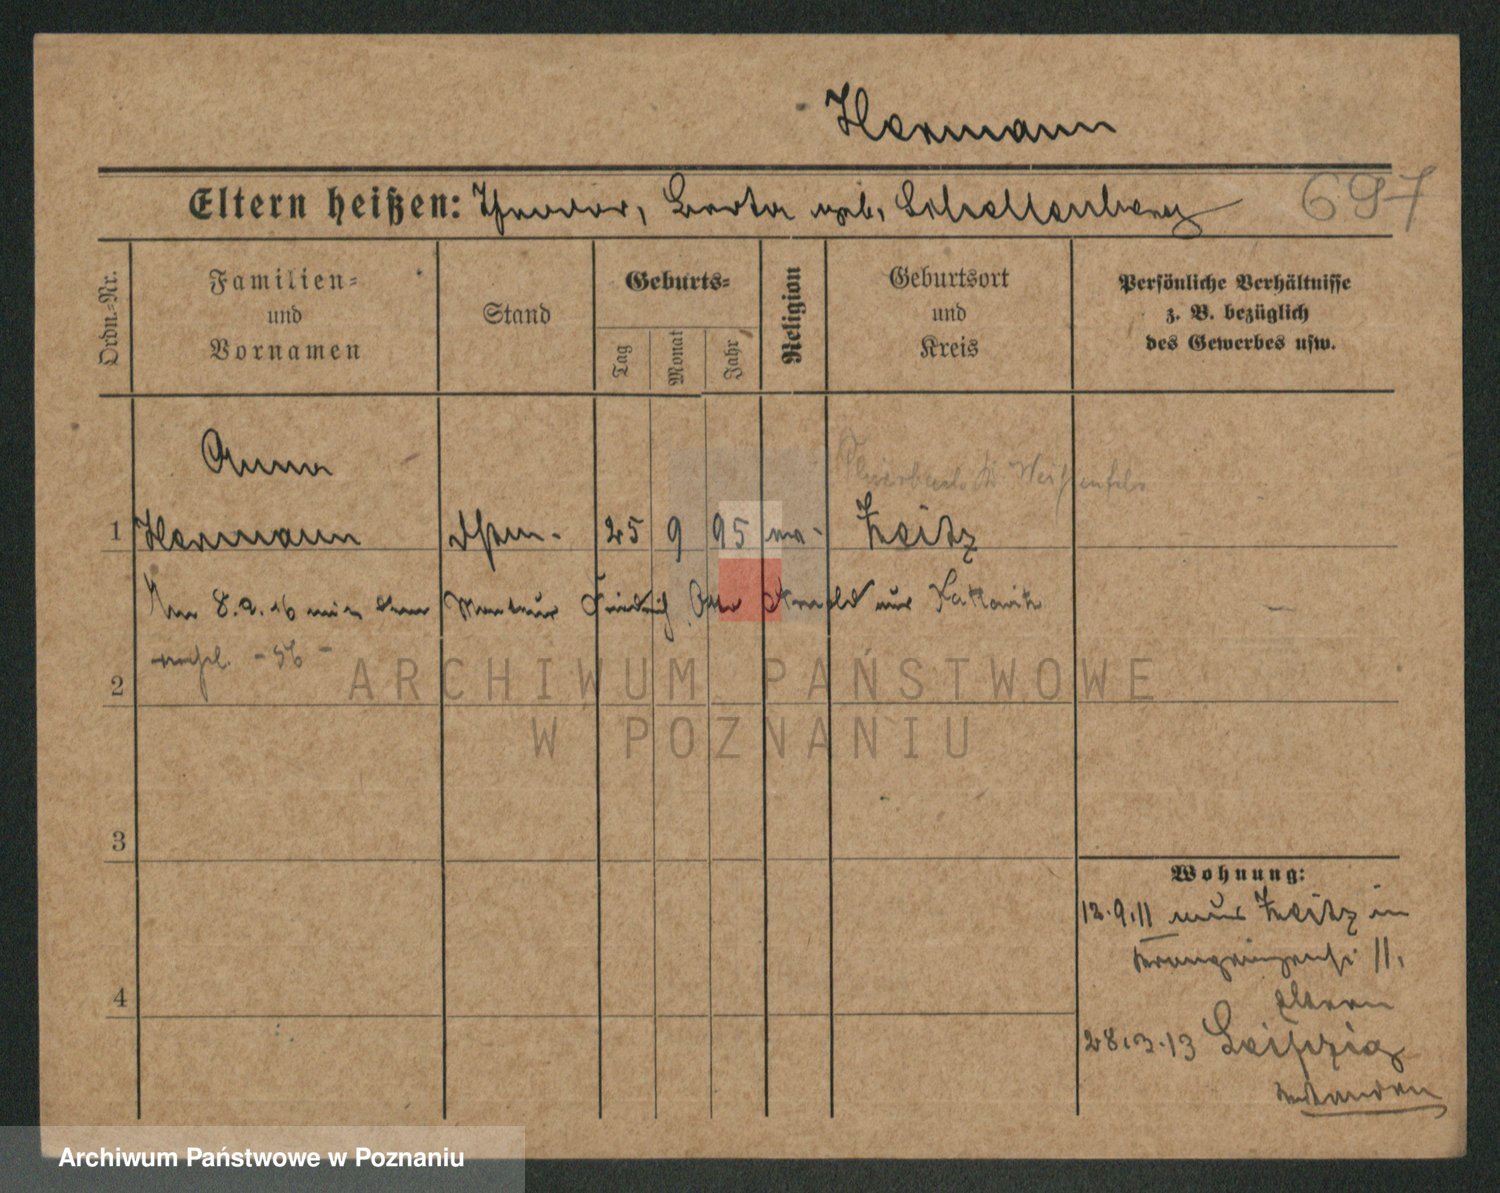 Hermann
Eltern heißen: Theodor, Berta geb. Schellenberg
697
Ordn.-Nr.
Familien-
und
Vornamen
Stand
Geburts-
Tag
Monat
Jahr
Religion
Geburtsort
und
Kreis
Persönliche Verhältnisse
z. B. bezüglich
des Gewerbes usw.
Anna
Kr. Weißenfels
1 Hermann 25 9 95 Zeitz
Am 8.2.16 mit dem Monteur Friedrich Otto Arnold aus Kattowitz
verehel.
2
ARCHIWUM PAŃSTWOWE
W POZNANIU
3
4
Wohnung:
12.9.11 aus Zeitz in
11,
Eltern
28.3.13 Leipzig
Archiwum Państwowe w Poznaniu